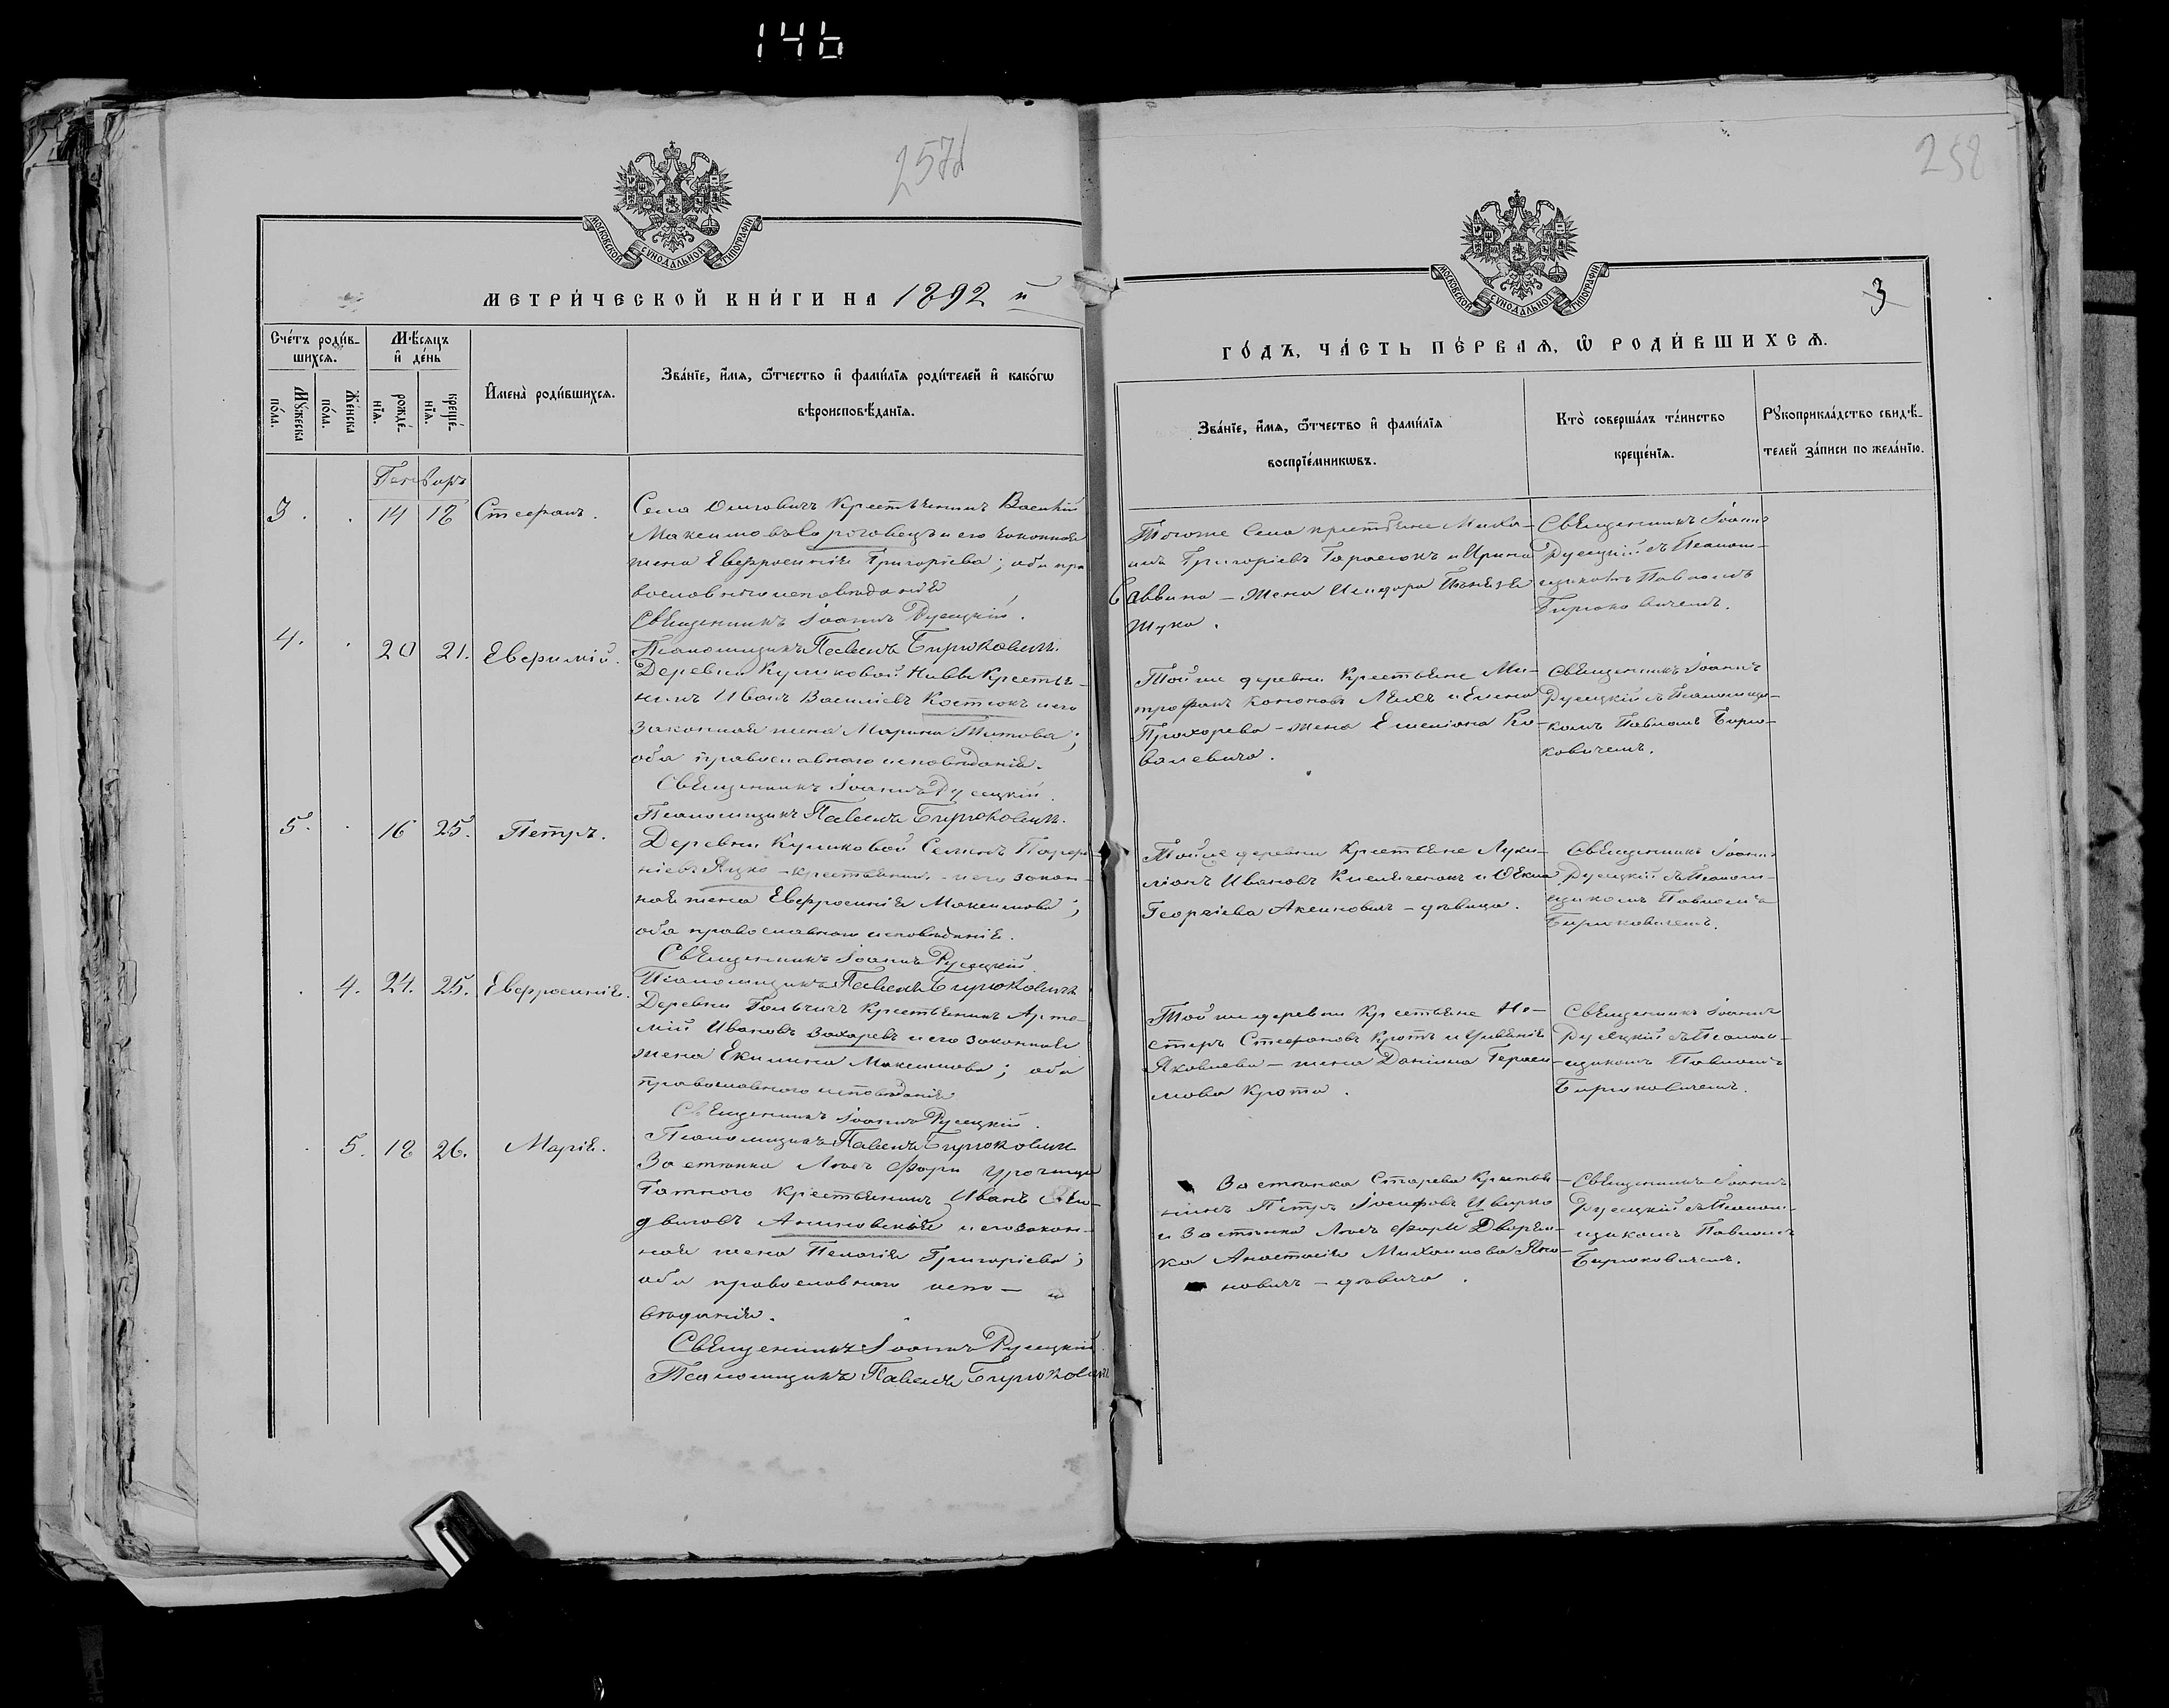 146
257
МОСКОВСКОЙ СУНОДАЛЬНОЙ ТИПОГРАФІИ
МЕТРИ́ЧЕСКОЙ КНИ́ГИ НА 1892 й
Сче́тъ роди́в-
шихсѧ.
Мꙋ́жеска
по́ла.
Же́нска
по́ла.
Мѣ́сѧцъ
и҆ де́нь
рожде́-
нїѧ.
креще́-
нїѧ.
И҆мена̀ роди́вшихсѧ.
Зва́нїе, и҆́мѧ, ѻ҆́тчество и҆ фами́лїѧ роди́телей и҆ како́гѡ
вѣроисповѣ́данїѧ.
Генваръ
3. . 14 18 Стефанъ.
Села крестьянинъ Василій
Максимовъ и его законная
жена Евфросинія Григорiева; оба пра
вославнаго исповѣданія
Священникъ Іоаннъ Русецкій.
Псаломщикъ Павелъ Бирюковичъ.
4. . 20 21. Евфимій.
Деревни Куликовой Нивы крестья-
нинъ Иванъ Василіевъ Костюкъ и его
законная жена Марина Титова;
оба православнаго исповѣданія.
Священникъ Іоаннъ Русецкій.
Псаломщикъ Павелъ Бирюковичъ.
5. . 16 25. Петръ.
Деревни Куликовой Семенъ Парфе-
ніевъ Яцко - крестьянинъ - и его закон-
ная жена Евфросинія Максимова;
оба православнаго исповѣданія.
Священникъ Іоаннъ Русецкій.
Псаломщикъ Павелъ Бирюковичъ
. 4. 24. 25. Евфросинія.
Деревни крестьянинъ Арте-
мій Ивановъ Захаревъ и его законная
жена Екилина Максимова; оба
православнаго исповѣданія
Священникъ Іоаннъ Русецкій.
Псаломщикъ Павелъ Бирюковичъ
. 5. 18 26. Марія.
Застѣнка урочища
Гатного крестьянинъ Иванъ
и его закон-
ная жена Пелагія Григоріева;
оба православнаго испо-
вѣданія.
Священникъ Іоаннъ Русецкій.
Псаломщикъ Павелъ Бирюковичъ
258
3
МОСКОВСКОЙ СУНОДАЛЬНОЙ ТИПОГРАФІИ
ГО́ДЪ, ЧА́СТЬ ПЕ́РВАѦ, Ѡ҆ РОДИ́ВШИХСѦ.
Зва́нїе, и҆́мѧ, ѻ҆́тчество и҆ фами́лїѧ
воспрїе́мникѡвъ.
Кто̀ соверша́лъ та́инство
креще́нїѧ.
Рꙋкоприкла́дство свидѣ́-
телей за́писи по жела́нїю.
Тогоже села крестьяне Миха-
илъ Григоріевъ Тарасюкъ и Ирина
Саввина - жена Исидора
Священникъ Іоаннъ
Русецкій съ Псалом-
щикомъ Павломъ
Бирюковичемъ.
Той же деревни крестьяне Ми-
трофанъ Кононовъ и Елена
Прохорева - жена Емеліана Ко-
валевича.
Священникъ Іоаннъ
Русецкій съ Псаломщи-
комъ Павломъ Бирю-
ковичемъ.
Той же деревни крестьяне Луки-
ліанъ Ивановъ и Ѳекла
Георгіева Аксиновичъ - дѣвица.
Священникъ Іоаннъ
Русецкій съ Псалом-
щикомъ Павломъ
Бирюковичемъ.
Той же деревни крестьяне Не-
стеръ Стефановъ Кротъ и Уліянія
Яковлева - жена Даніила Гераси-
мова Крота.
Священникъ Іоаннъ
Русецкій съ Псалом-
щикомъ Павломъ
Бирюковичемъ.
Застѣнка Старева крестья-
нинъ Петръ Іосифовъ
и Застѣнка Дворян-
ка Анастасія Михаилова Яно-
новичъ - дѣвица.
Священникъ Іоаннъ
Русецкій съ Псалом-
щикомъ Павломъ
Бирюковичемъ.